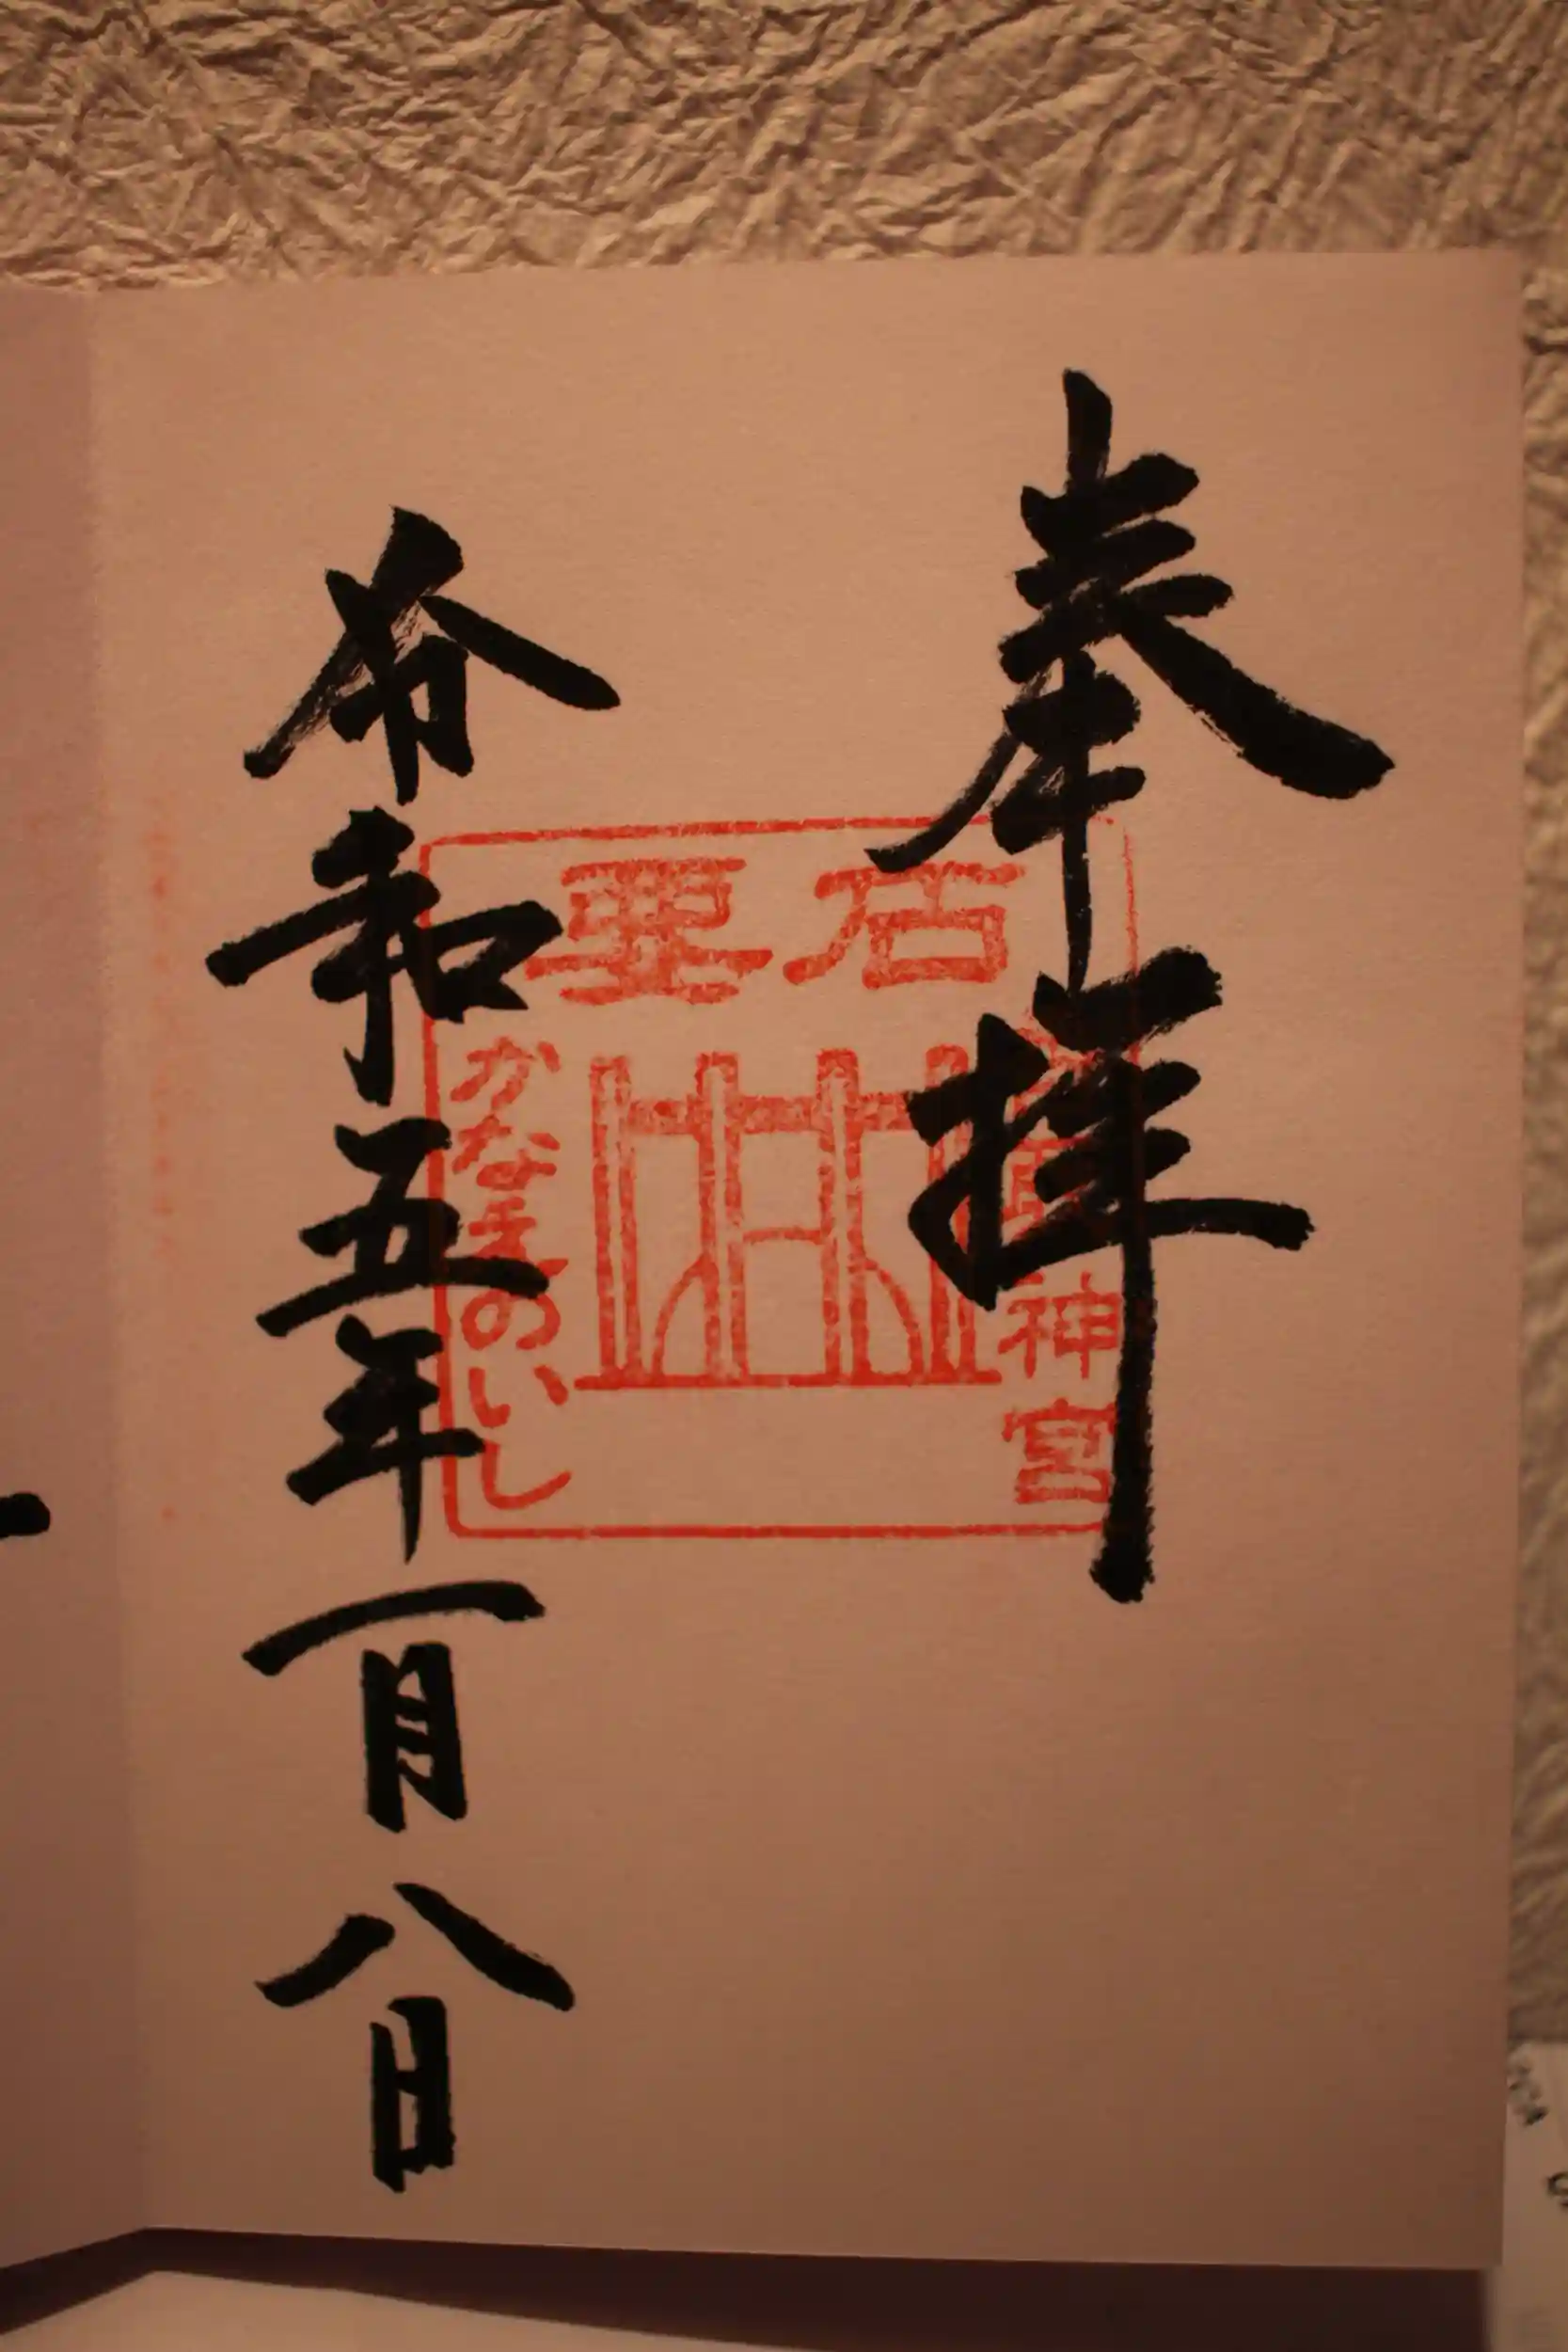 奉拝
要石
神宮
かな のいし
令和五年一月八日